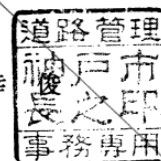 道路管理
神戸市
長之印
事務専用
俊